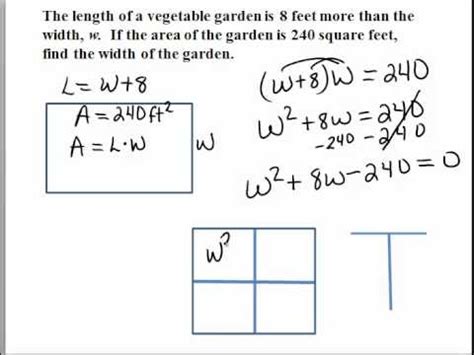 The length of a vegetable garden is 8 feet more than the
width, w. If the area of the garden is 240 square feet,
find the width of the garden.
L = W+8
A = 240 ft²
A = L·W
W
(W+8)W = 240
W² + 8W = 240
-240 -240
W² + 8W - 240 = 0
W²